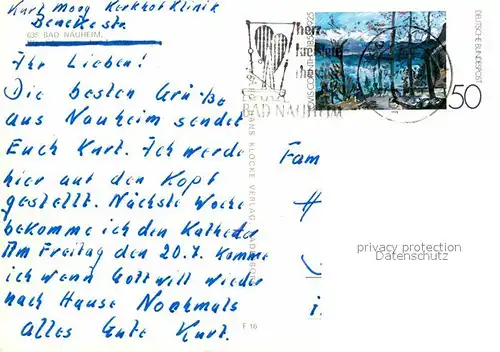 Kurt Moog Kerkhof Klinik
Benekestr.
635 BAD NAUHEIM.
Ihr Lieben!
Die besten Grüße
aus Nauheim sendet
Euch Kurt. Ich werde
hier auf den Kopf
gestellt. Nächste Woche
bekomme ich den Katheter
Am Freitag den 20.7. komme
ich wenn Gott will wieder
nach Hause Nochmals
alles Gute Kurt.
F 16
HANS KLOCKE VERLAG
herz
BAD NAUHEIM
LOVIS CORINTH 1858-1925
DEUTSCHE BUNDESPOST
50
Fam
H
i.
privacy protection
Datenschutz